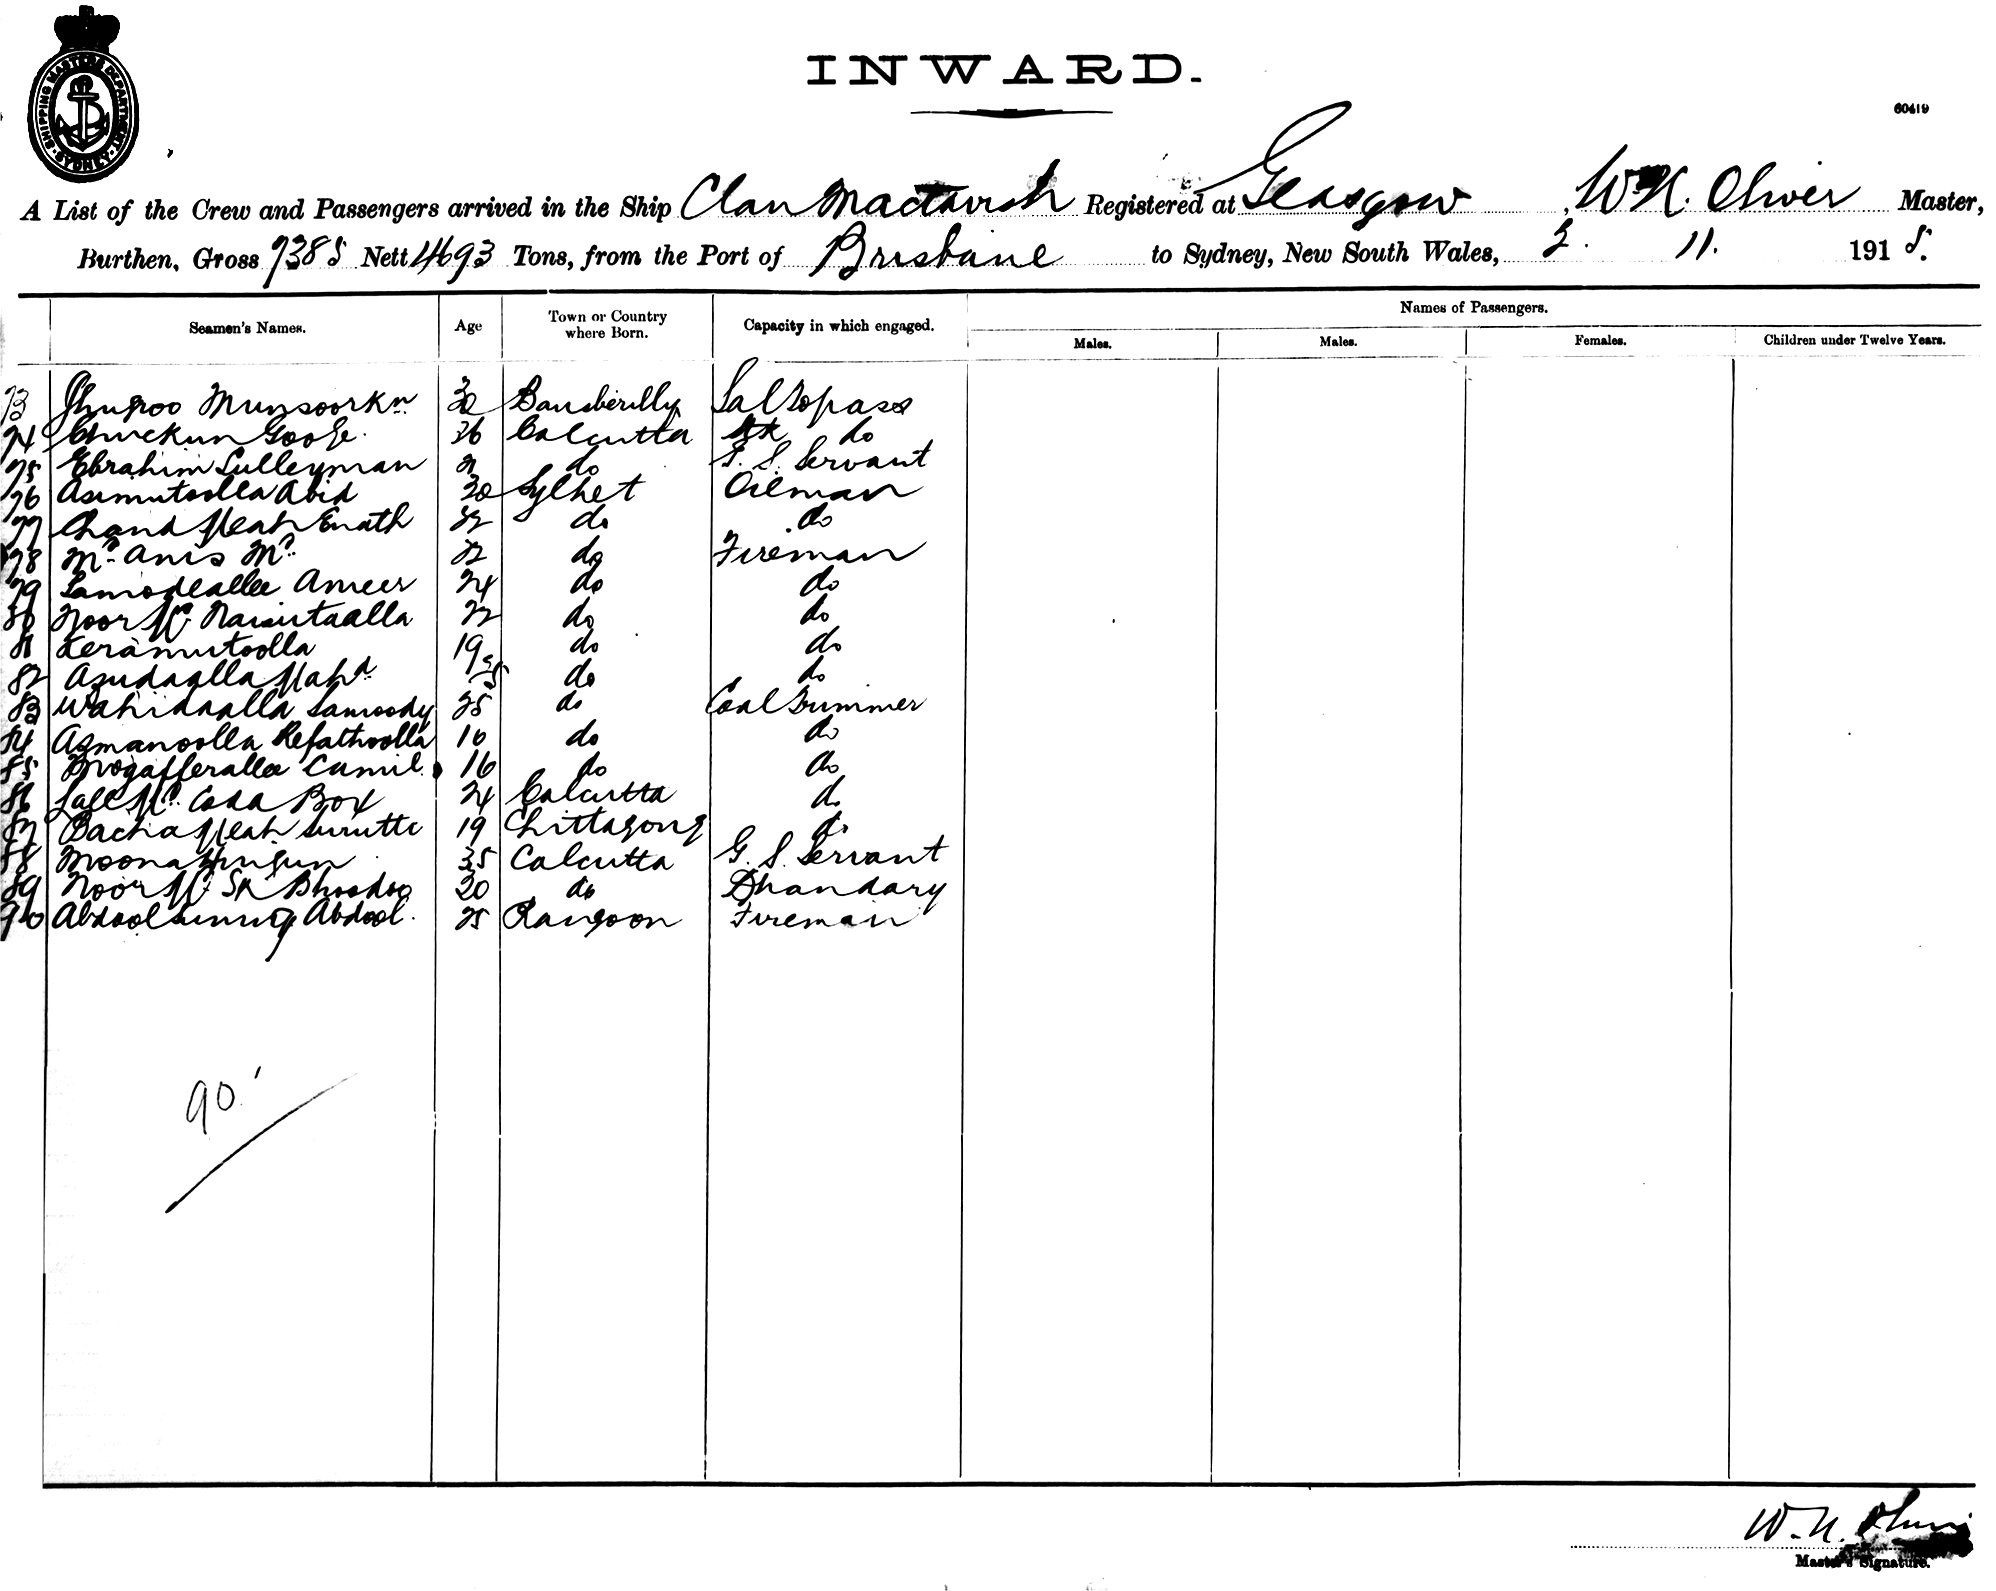 SHIPPING MASTERS DEPARTMENT SYDNEY
INWARD.
60419
A List of the Crew and Passengers arrived in the Ship Clan Mactavish Registered at Glasgow, W. N. Oliver Master,
Burthen, Gross 7385 Nett 4693 Tons, from the Port of Brisbane to Sydney, New South Wales, 3. 11. 1915.
Seamen's Names. Age Town or Country where Born. Capacity in which engaged. Names of Passengers.
Males. Males. Females. Children under Twelve Years.
73 Munsoorkn 32 Bansberilly
74 26 Calcutta do
75 Ebrahim Sulleyman 21 do G. S. Servant
76 Asimutoolla Abid 30 Sylhet Oilman
77 Chand Meah Enath 22 do do
78 Md. Anis Md. 22 do Fireman
79 Samodeallee Ameer 24 do do
80 Noor Md. 22 do do
81 Keramutoolla 19 do do
82 Azudaalla Mahd 25 do do
83 Wahidaalla Samoody 25 do Coal Trimmer
84 Azmanoolla Refathoolla 16 do do
85 Mogafferallee Camil. 16 do do
86 Lall Md. Coda Box 24 Calcutta do
87 Bacha Meah 19 Chittagong do
88 Moona 35 Calcutta G. S. Servant
89 Noor Md. Sk Bhoodoo 30 do Bhandary
90 Abdool Abdool. 25 Rangoon Fireman
90
W. N. Oliver
Master's Signature.